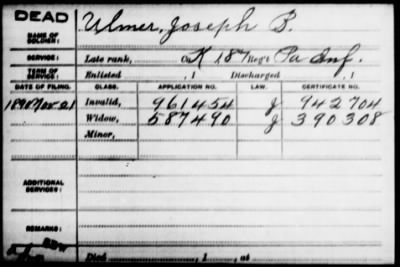 DEAD
Ulmer, Joseph B.
NAME OF SOLDIER:
SERVICE: Late rank, Co. K 187 Reg't Pa Inf.
TERM OF SERVICE: Enlisted , 1 Discharged , 1
DATE OF FILING. CLASS. APPLICATION NO. LAW. CERTIFICATE NO.
1890 Nov 21 Invalid, 961454 J 942704
Widow, 587490 J 390308
Minor,
ADDITIONAL SERVICES:
REMARKS:
Died , 1 , at